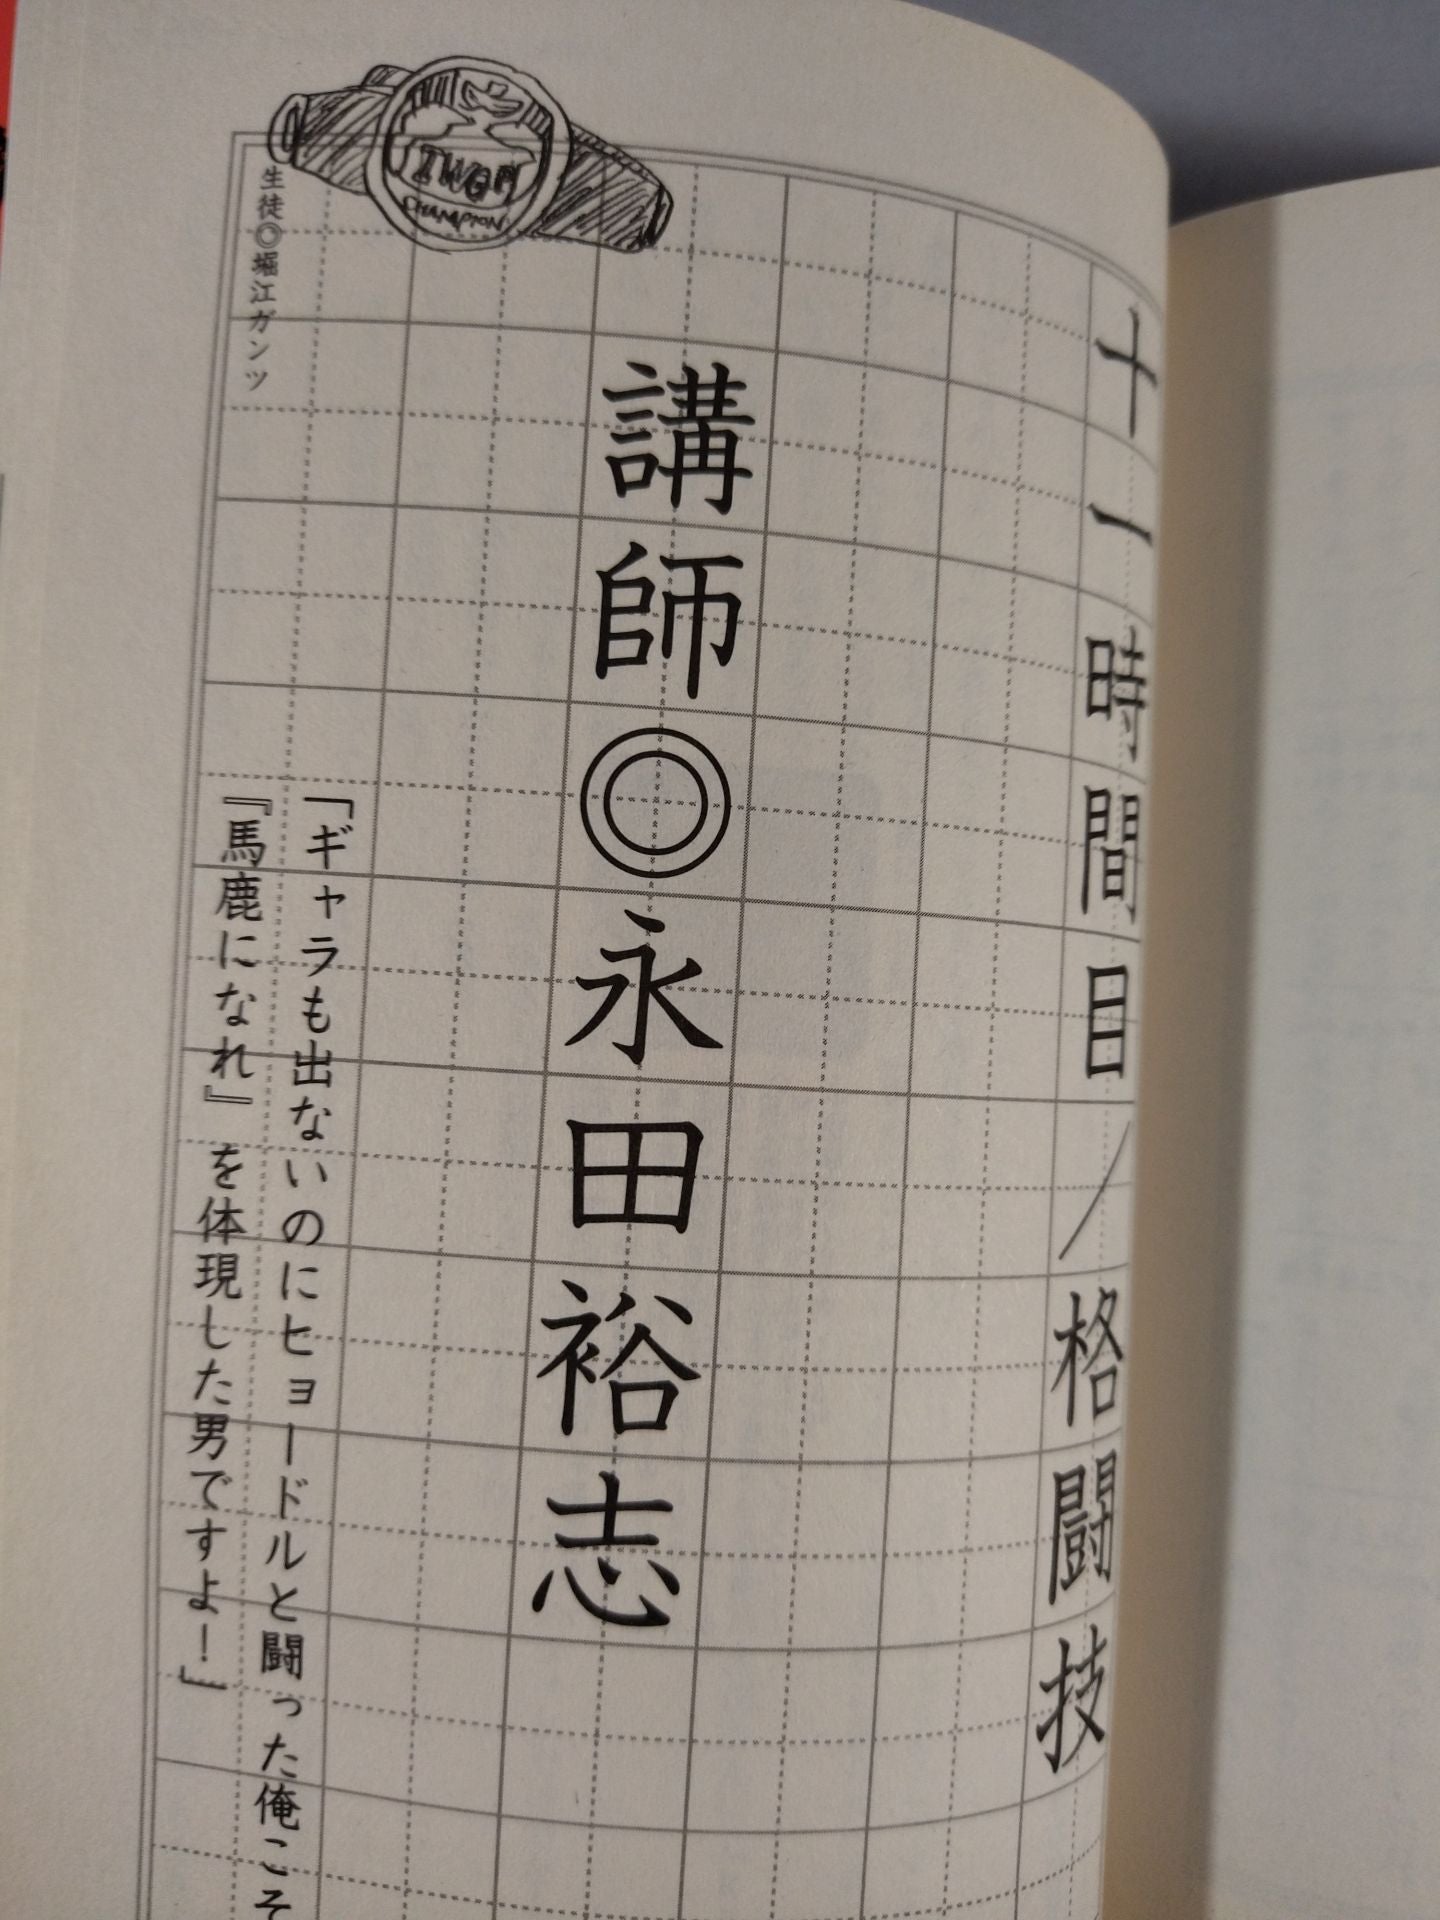 十一時間目／格闘技
講師◎永田裕志
「ギャラも出ないのにヒョードルと闘った俺こそ
『馬鹿になれ』を体現した男ですよ！」
生徒◎堀江ガンツ
IWGP
CHAMPION